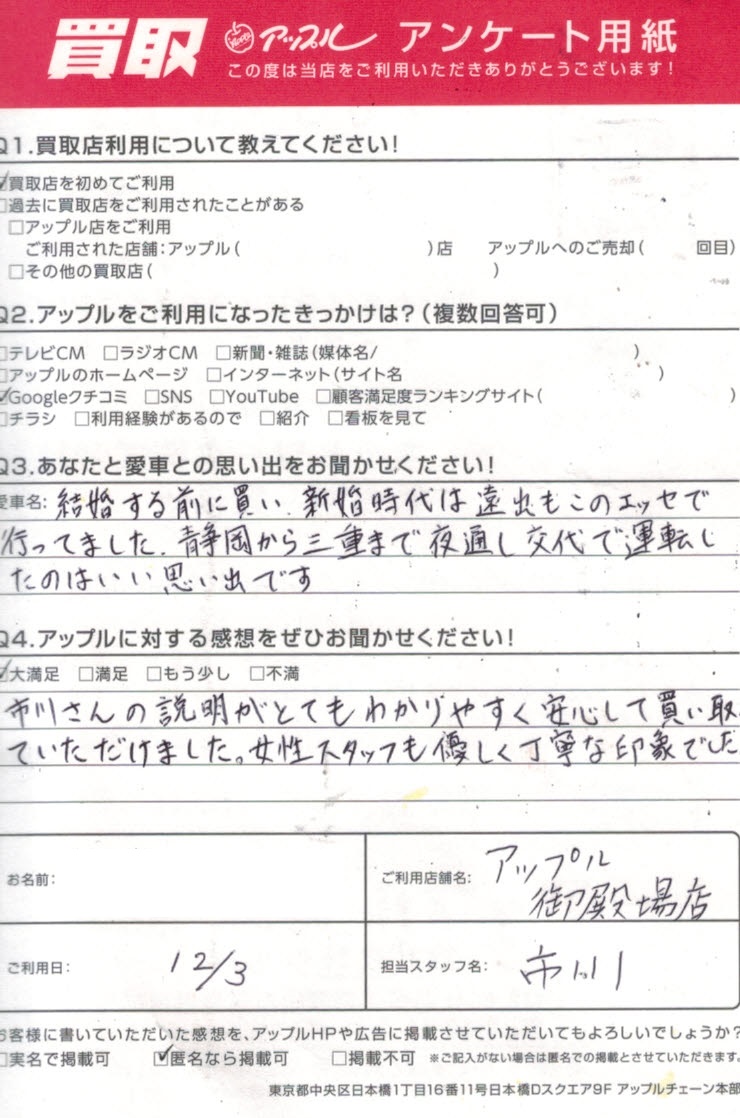 買取 Apple アップル アンケート用紙
この度は当店をご利用いただきありがとうございます!
Q1.買取店利用について教えてください!
☑買取店を初めてご利用
□過去に買取店をご利用されたことがある
□アップル店をご利用
ご利用された店舗:アップル( )店 アップルへのご売却( 回目)
□その他の買取店( )
Q2.アップルをご利用になったきっかけは?(複数回答可)
□テレビCM □ラジオCM □新聞・雑誌(媒体名/ )
□アップルのホームページ □インターネット(サイト名 )
☑Googleクチコミ □SNS □YouTube □顧客満足度ランキングサイト( )
□チラシ □利用経験があるので □紹介 □看板を見て
Q3.あなたと愛車との思い出をお聞かせください!
愛車名: 結婚する前に買い、新婚時代は遠出もこのエッセで
行ってました。静岡から三重まで夜通し交代で運転し
たのはいい思い出です
Q4.アップルに対する感想をぜひお聞かせください!
☑大満足 □満足 □もう少し □不満
市川さんの説明がとてもわかりやすく安心して買い取
ていただけました。女性スタッフも優しく丁寧な印象でした
お名前: ご利用店舗名: アップル
御殿場店
ご利用日: 12/3 担当スタッフ名: 市川
お客様に書いていただいた感想を、アップルHPや広告に掲載させていただいてもよろしいでしょうか?
□実名で掲載可 ☑匿名なら掲載可 □掲載不可 ※ご記入がない場合は匿名での掲載とさせていただきます。
東京都中央区日本橋1丁目16番11号日本橋Dスクエア9F アップルチェーン本部